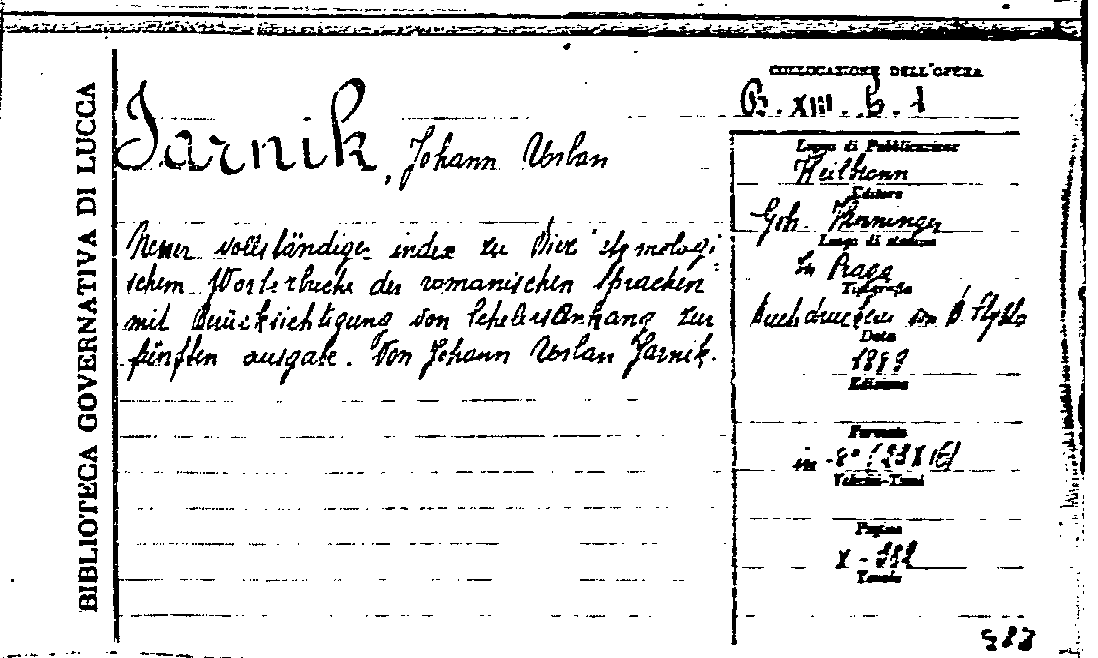 BIBLIOTECA GOVERNATIVA DI LUCCA
COLLOCAZIONE DELL'OPERA
B. XIII. b. 1
Jarnik, Johann Urban
Luogo di Pubblicazione
Heilbronn
Editore
Geb. Henninger
Luogo di stampa
In Praga
Tipografia
Buchdruckerei von
Data
Edizione
Neuer vollständiger index zu Diez' etymologi-
schem Worterbuche der romanischen Sprachen
mit Berücksichtigung von Schelers Anhang zur
fünften ausgabe. Von Johann Urban Jarnik.
Formato
in -8° (23X16)
Volumi-Tomi
Pagine
X -
Tavole